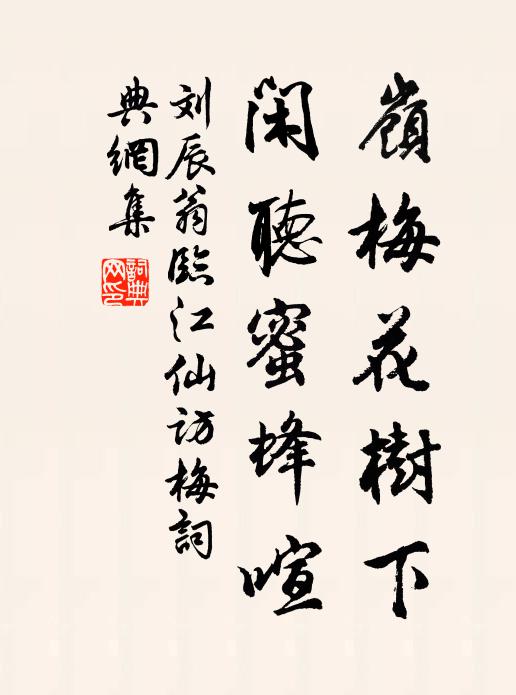 嶺梅花樹下
閑聽蜜蜂喧
刘辰翁臨江仙访梅詞
典網集
詞典
网印